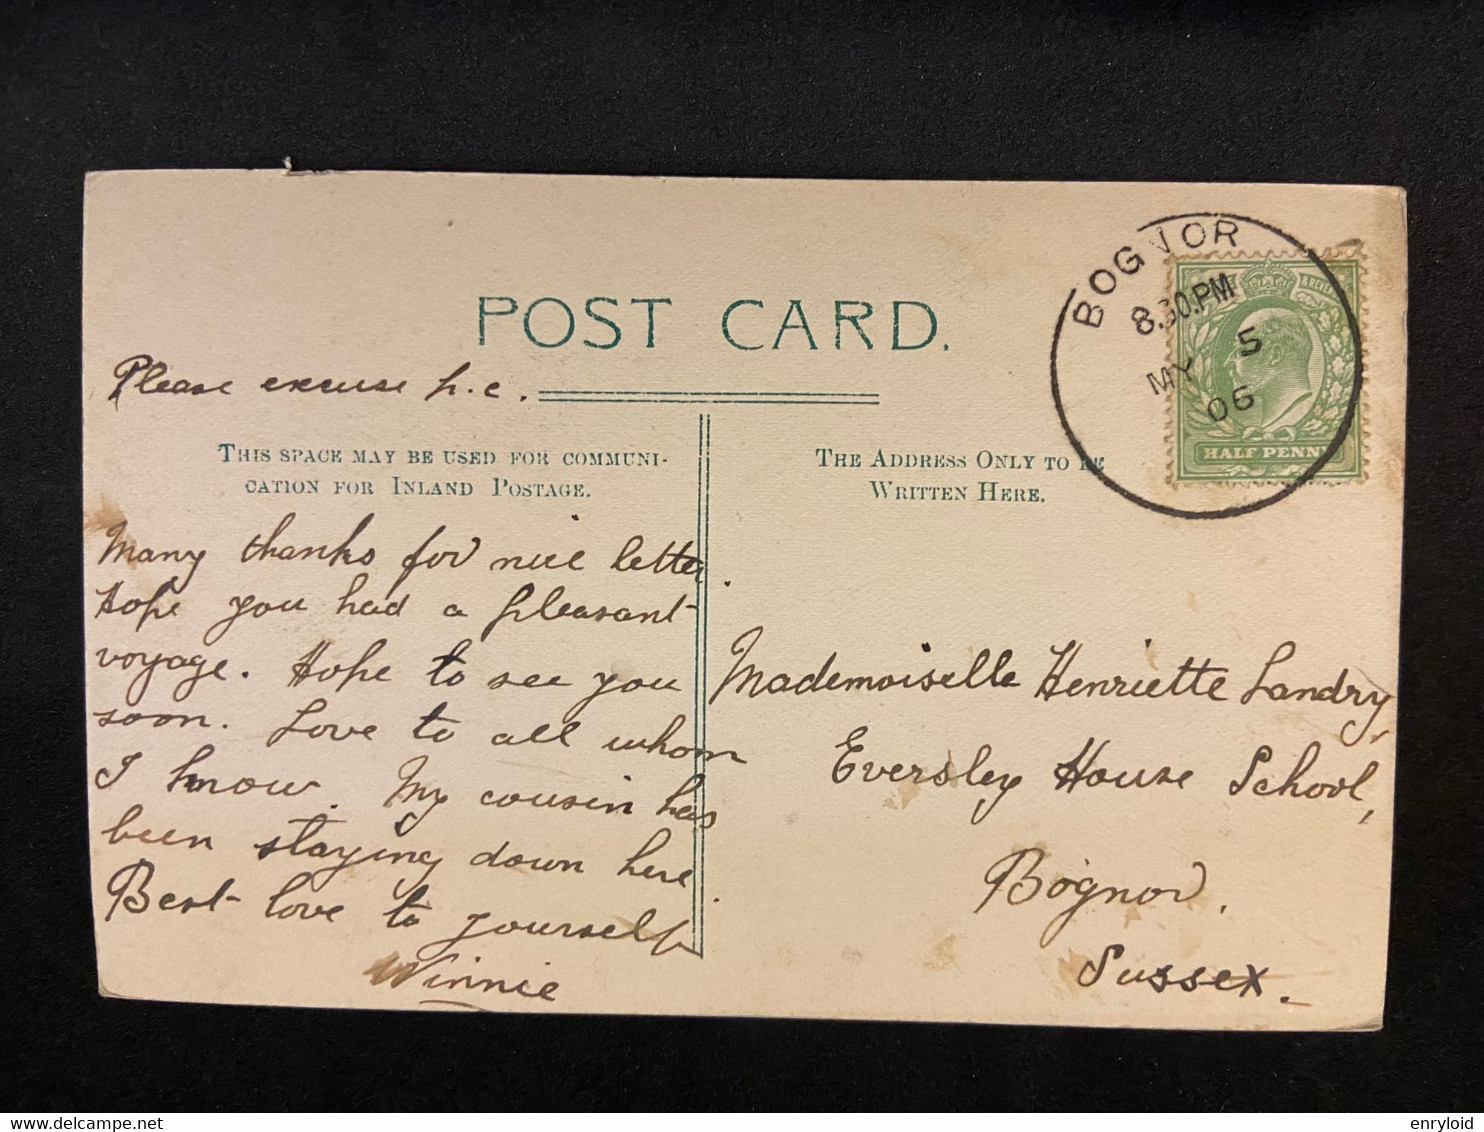 POST CARD.
Please excuse p.c.
THIS SPACE MAY BE USED FOR COMMUNI-
CATION FOR INLAND POSTAGE.
Many thanks for nice letter.
Hope you had a pleasant
voyage. Hope to see you
soon. Love to all whom
I know. My cousin has
been staying down here.
Best love to yourself
Winnie
THE ADDRESS ONLY TO BE
WRITTEN HERE.
Mademoiselle Henriette Landry,
Eversley House School,
Bognor.
Sussex.
BOGNOR
8.30.PM
MY 5
06
HALF PENNY
enryloid